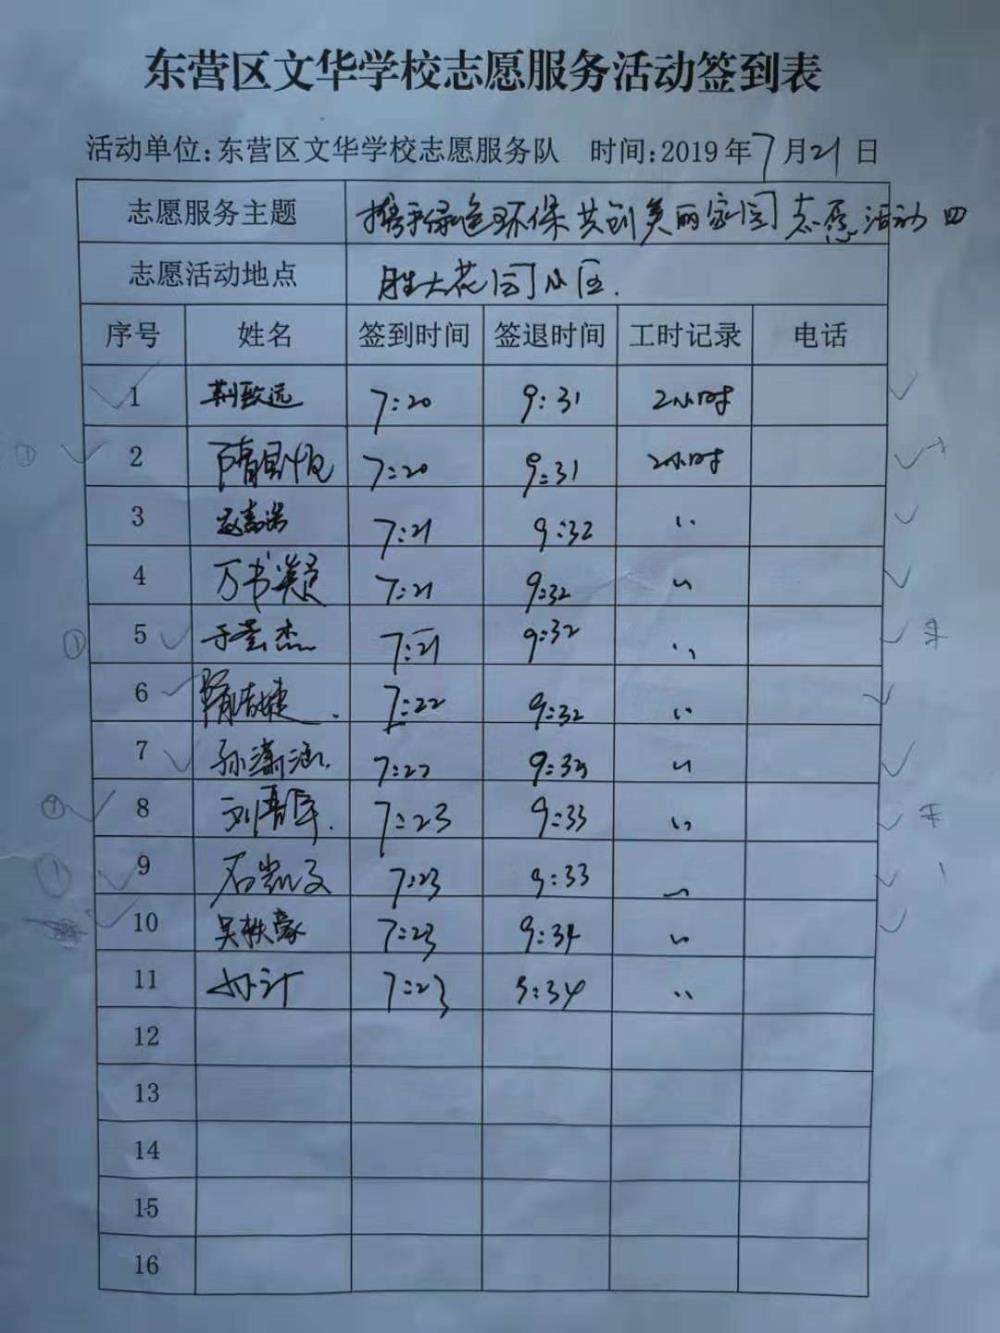 东营区文华学校志愿服务活动签到表
活动单位:东营区文华学校志愿服务队 时间:2019年7月21日
志愿服务主题 携手绿色环保共创美丽家园志愿活动四
志愿活动地点 胜大花园小区.
序号 姓名 签到时间 签退时间 工时记录 电话
1 荆致远 7:20 9:31 2小时
2 7:20 9:31 2小时
3 7:21 9:32 〃
4 万书 7:21 9:32 〃
5 于圣杰 7:21 9:32 〃
6 7:22 9:32 〃
7 孙潇涵 7:22 9:33 〃
8 刘 7:23 9:33 〃
9 石凯文 7:23 9:33 〃
10 吴轶豪 7:23 9:34 〃
11 7:23 9:34 〃
12
13
14
15
16